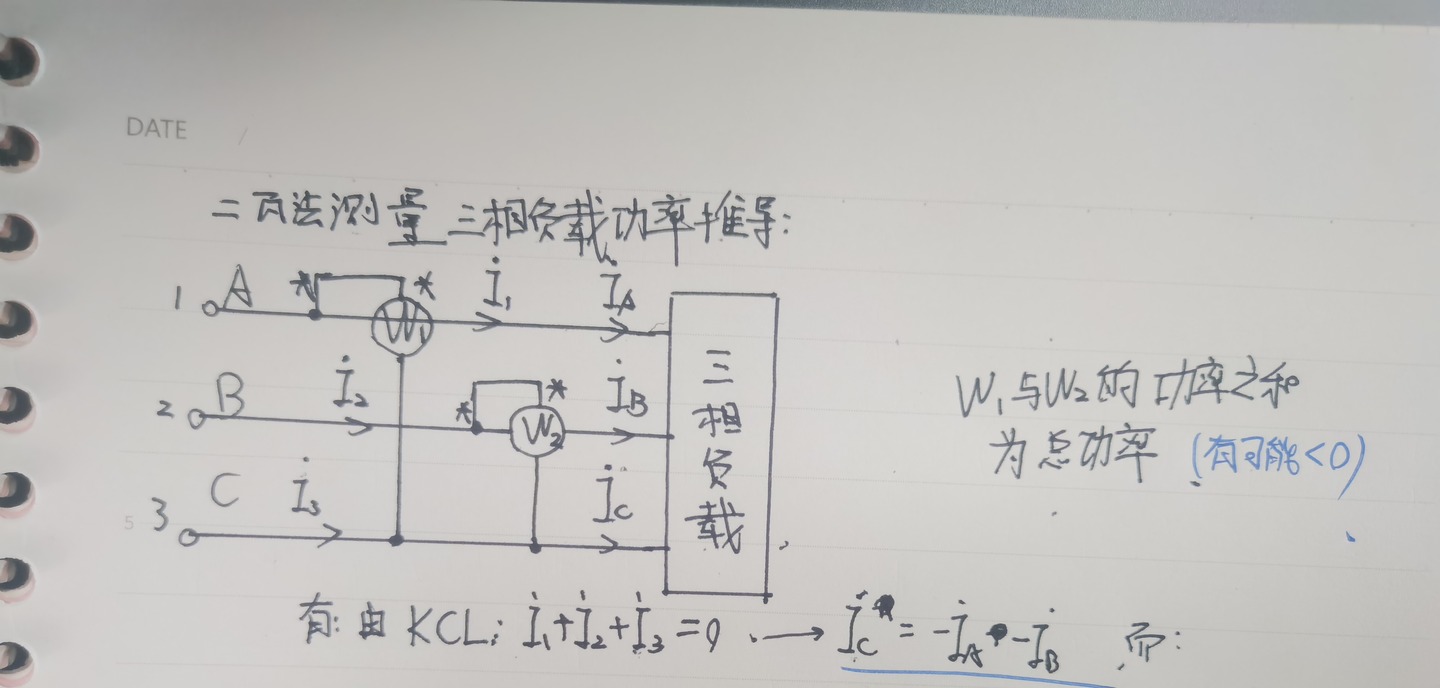 DATE
二瓦法测量三相负载功率推导:
1 A * W₁ * İ₁ İA
2 B İ₂ * W₂ * İB
5 3 C İ₃ İC
三相负载
W₁与W₂的功率之和
为总功率 (有可能<0)
有: 由KCL: İ₁+İ₂+İ₃=0 → İC = -İA - İB 而: